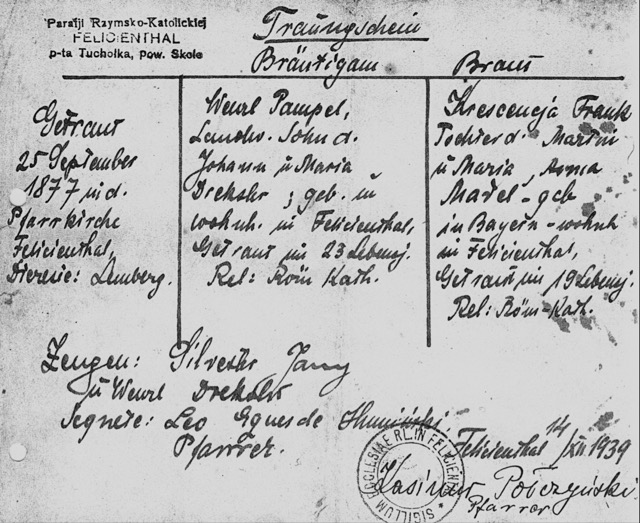 Parafji Rzymsko-Katolickiej
FELICIENTHAL
p-ta Tuchołka, pow. Skole
Trauungschein
Bräutigam
Braut
Getraut
25 September
1877 in d.
Pfarrkirche
Felicienthal,
Dierese: Lemberg.
Wenzl Pampel,
Landw. Sohn d.
Johann u Maria
Drekslr ; geb. u
wohnh. in Felicienthal,
Getraut im 23 Lebensj.
Rel: Röm Kath.
Krescencja Frank
Tochter d. Martin
u Maria, Anna
Madel - geb
in Bayern - wohnh
in Felicienthal,
Getraut im 19 Lebensj.
Rel: Röm-Kath.
Zeugen: Silvester
u Wenzl Drekslr
Segnete: Leo
Pfarrer.
SIGILLUM ECCLESIAE RL. IN FELICIENT
Felicienthal 14/XII 1939
Pfarrer